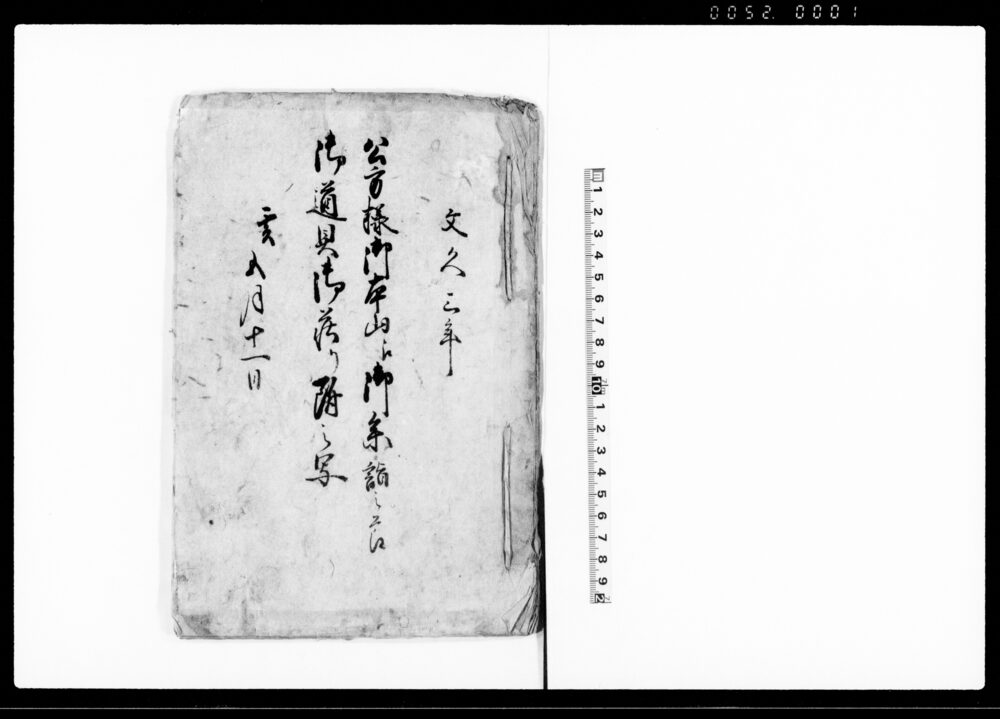 0052. 0001
文久三年
公方様御本山江御参詣之節
御道具御荘り附之写
亥五月十一日
1 2 3 4 5 6 7 8 9 10 1 2 3 4 5 6 7 8 9 2